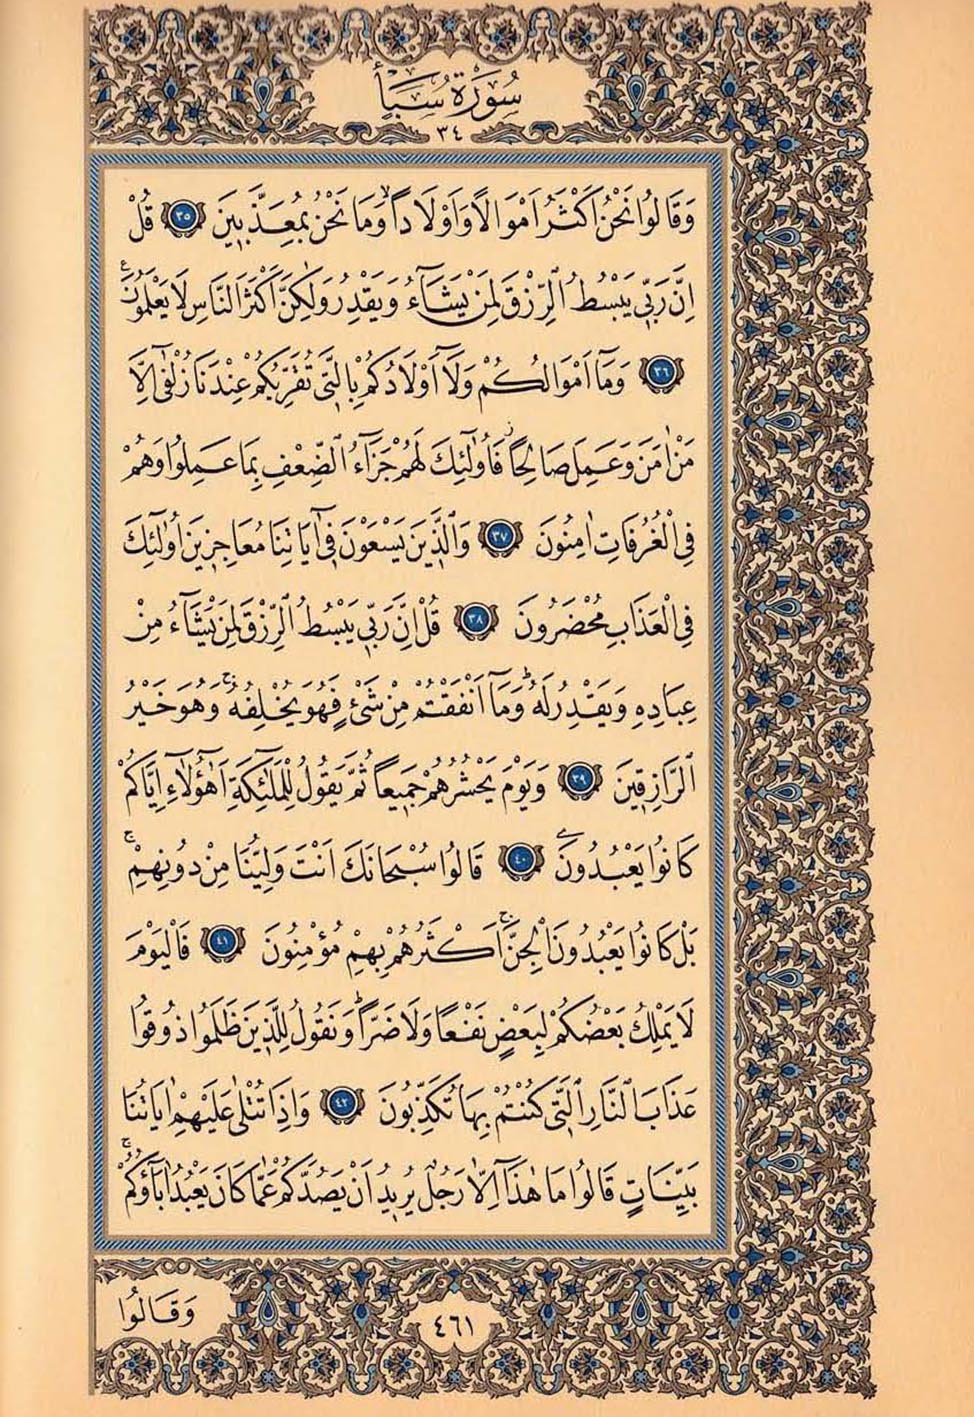 سُورَةُ سَبَأٍ
٣٤
وَقَالُوا نَحْنُ اَكْثَرُ اَمْوَالًا وَاَوْلَادًاۙ وَمَا نَحْنُ بِمُعَذَّب۪ينَ ٣٥ قُلْ
اِنَّ رَبّ۪ي يَبْسُطُ الرِّزْقَ لِمَنْ يَشَٓاءُ وَيَقْدِرُ وَلٰكِنَّ اَكْثَرَ النَّاسِ لَا يَعْلَمُونَ۟
٣٦ وَمَٓا اَمْوَالُكُمْ وَلَٓا اَوْلَادُكُمْ بِالَّت۪ي تُقَرِّبُكُمْ عِنْدَنَا زُلْفٰٓى اِلَّا
مَنْ اٰمَنَ وَعَمِلَ صَالِحًاۘ فَاُو۬لٰٓئِكَ لَهُمْ جَزَٓاءُ الضِّعْفِ بِمَا عَمِلُوا وَهُمْ
فِي الْغُرُفَاتِ اٰمِنُونَ ٣٧ وَالَّذ۪ينَ يَسْعَوْنَ ف۪ٓي اٰيَاتِنَا مُعَاجِز۪ينَ اُو۬لٰٓئِكَ
فِي الْعَذَابِ مُحْضَرُونَ ٣٨ قُلْ اِنَّ رَبّ۪ي يَبْسُطُ الرِّزْقَ لِمَنْ يَشَٓاءُ مِنْ
عِبَادِه۪ وَيَقْدِرُ لَهُۜ وَمَٓا اَنْفَقْتُمْ مِنْ شَيْءٍ فَهُوَ يُخْلِفُهُۚ وَهُوَ خَيْرُ
الرَّازِق۪ينَ ٣٩ وَيَوْمَ يَحْشُرُهُمْ جَم۪يعًا ثُمَّ يَقُولُ لِلْمَلٰٓئِكَةِ اَهٰٓؤُ۬لَٓاءِ اِيَّاكُمْ
كَانُوا يَعْبُدُونَ ٤٠ قَالُوا سُبْحَانَكَ اَنْتَ وَلِيُّنَا مِنْ دُونِهِمْۚ
بَلْ كَانُوا يَعْبُدُونَ الْجِنَّۚ اَكْثَرُهُمْ بِهِمْ مُؤْمِنُونَ ٤١ فَالْيَوْمَ
لَا يَمْلِكُ بَعْضُكُمْ لِبَعْضٍ نَفْعًا وَلَا ضَرًّاۜ وَنَقُولُ لِلَّذ۪ينَ ظَلَمُوا ذُوقُوا
عَذَابَ النَّارِ الَّت۪ي كُنْتُمْ بِهَا تُكَذِّبُونَ ٤٢ وَاِذَا تُتْلٰى عَلَيْهِمْ اٰيَاتُنَا
بَيِّنَاتٍ قَالُوا مَا هٰذَٓا اِلَّا رَجُلٌ يُر۪يدُ اَنْ يَصُدَّكُمْ عَمَّا كَانَ يَعْبُدُ اٰبَٓاؤُ۬كُمْۚ
٤٦١
وَقَالُوا